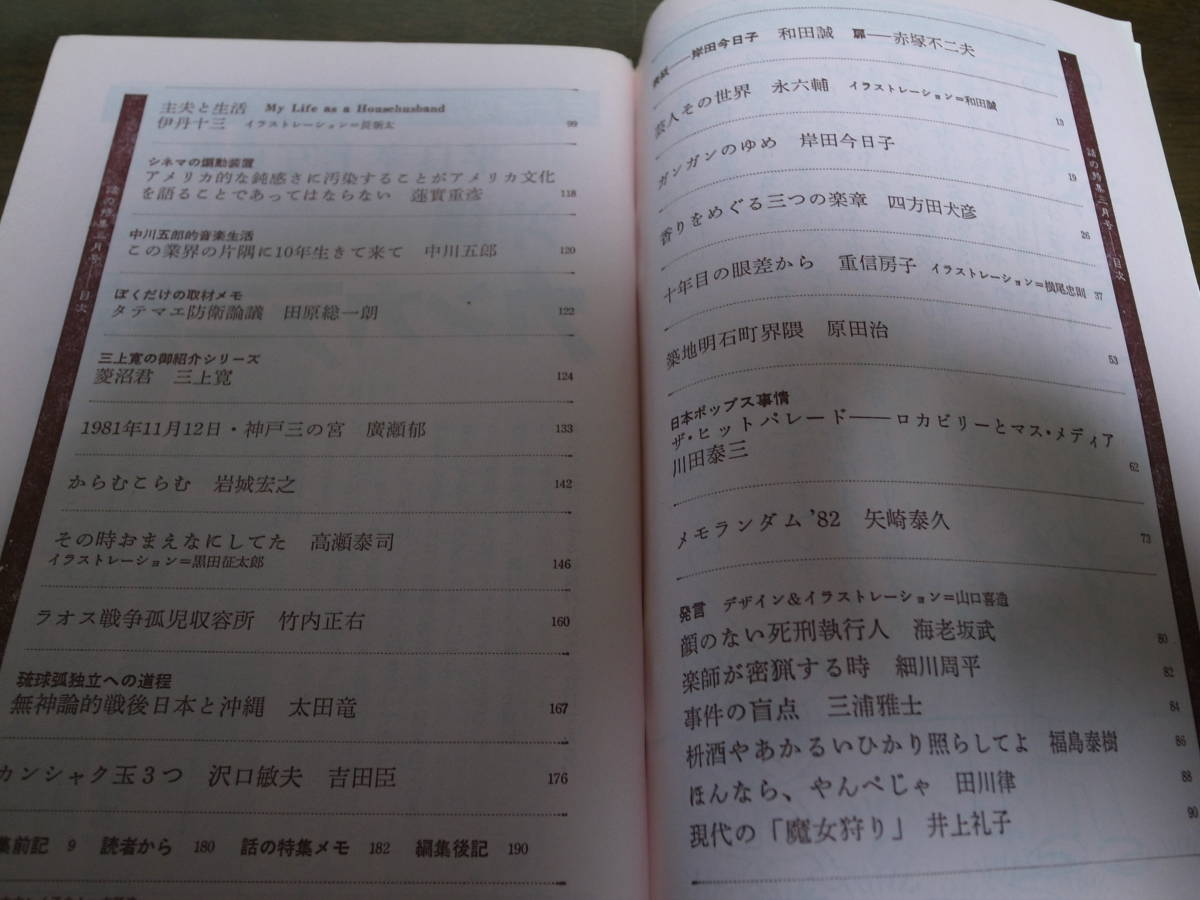 主夫と生活 My Life as a Househusband
伊丹十三 イラストレーション=長新太 99
シネマの煽動装置
アメリカ的な鈍感さに汚染することがアメリカ文化
を語ることであってはならない 蓮實重彦 118
中川五郎的音楽生活
この業界の片隅に10年生きて来て 中川五郎 120
ぼくだけの取材メモ
タテマエ防衛論議 田原総一朗 122
三上寛の御紹介シリーズ
菱沼君 三上寛 124
1981年11月12日・神戸三の宮 廣瀬郁 133
からむこらむ 岩城宏之 142
その時おまえなにしてた 高瀬泰司
イラストレーション=黒田征太郎 146
ラオス戦争孤児収容所 竹内正右 160
琉球弧独立への道程
無神論的戦後日本と沖縄 太田竜 167
カンシャク玉3つ 沢口敏夫 吉田臣 176
集前記 9 読者から 180 話の特集メモ 182 編集後記 190
話の特集三月号——目次
表紙——岸田今日子 和田誠 扉——赤塚不二夫
芸人その世界 永六輔 イラストレーション=和田誠 13
ガンガンのゆめ 岸田今日子 19
香りをめぐる三つの楽章 四方田犬彦 26
十年目の眼差から 重信房子 イラストレーション=横尾忠則 37
築地明石町界隈 原田治 53
日本ポップス事情
ザ・ヒットパレード——ロカビリーとマス・メディア
川田泰三 62
メモランダム'82 矢崎泰久 73
発言 デザイン&イラストレーション=山口喜造
顔のない死刑執行人 海老坂武 80
楽師が密猟する時 細川周平 82
事件の盲点 三浦雅士 84
枡酒やあかるいひかり照らしてよ 福島泰樹 86
ほんなら、やんぺじゃ 田川律 88
現代の「魔女狩り」 井上礼子 90
話の特集三月号——目次